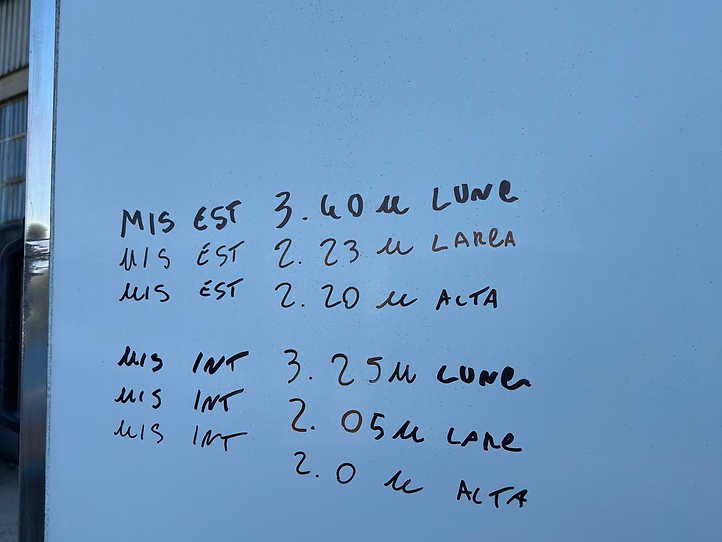 MIS EST 3.40 M LUNG
MIS EST 2.23 M LARGA
MIS EST 2.20 M ALTA
MIS INT 3.25 M LUNGA
MIS INT 2.05 M LARG
MIS INT 2.0 M ALTA